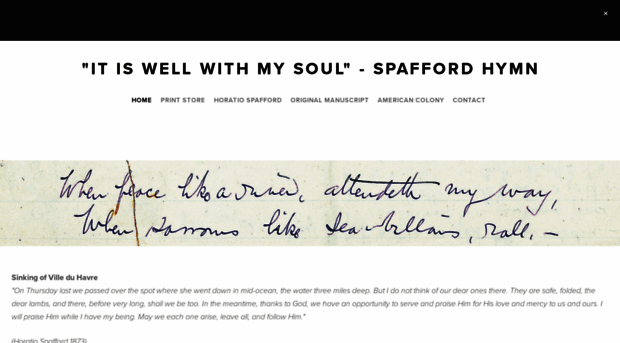 ×
"IT IS WELL WITH MY SOUL" - SPAFFORD HYMN
HOME PRINT STORE HORATIO SPAFFORD ORIGINAL MANUSCRIPT AMERICAN COLONY CONTACT
When peace like a river, attendeth my way,
When sorrows like sea billows, roll, —
Sinking of Ville du Havre
"On Thursday last we passed over the spot where she went down in mid-ocean, the water three miles deep. But I do not think of our dear ones there. They are safe, folded, the
dear lambs, and there, before very long, shall we be too. In the meantime, thanks to God, we have an opportunity to serve and praise Him for His love and mercy to us and ours. I
will praise Him while I have my being. May we each one arise, leave all, and follow Him."
(Horatio Spafford 1873)